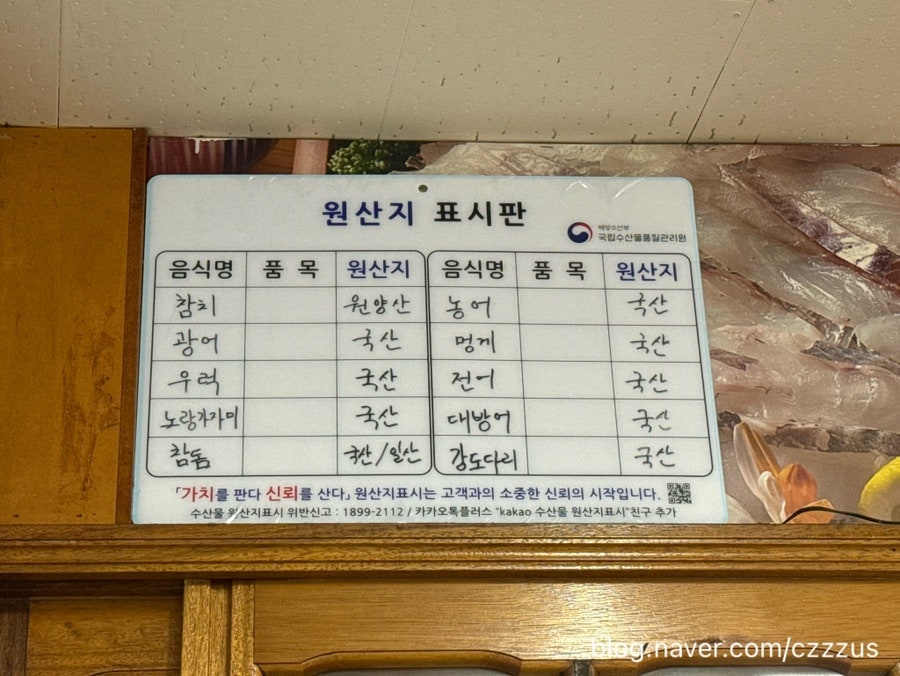 원산지 표시판
해양수산부
국립수산물품질관리원
음식명 품 목 원산지 음식명 품 목 원산지
참치 원양산 농어 국산
광어 국산 멍게 국산
우럭 국산 전어 국산
노랑가자미 국산 대방어 국산
참돔 국산/일산 강도다리 국산
「가치를 판다 신뢰를 산다」 원산지표시는 고객과의 소중한 신뢰의 시작입니다.
수산물 원산지표시 위반신고 : 1899-2112 / 카카오톡플러스 "kakao 수산물 원산지표시"친구 추가
blog.naver.com/czzzus